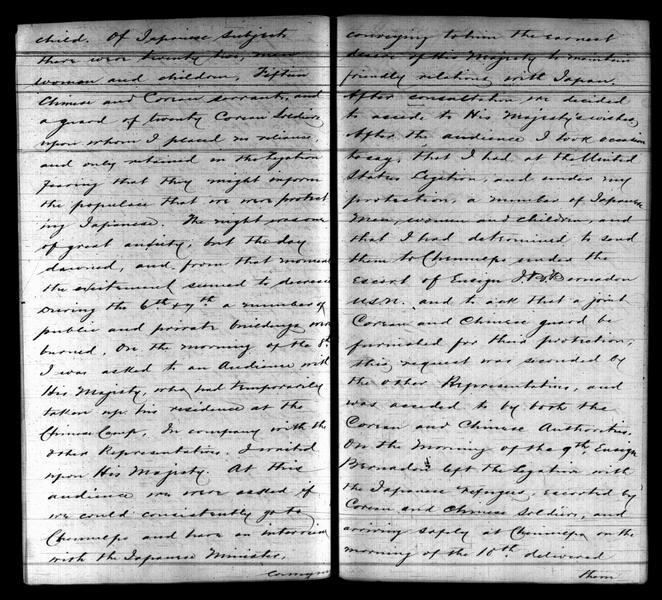 child. Of Japanese subjects
there were twenty two, men
woman and children, Fifteen
Chinese and Corean servants, and
a guard of twenty Corean Soldiers
upon whom I placed no reliance,
and only retained in the Legation
fearing that they might inform
the populace that we were protect
ing Japanese. The night was one
of great anxiety, but the day
dawned, and from that moment
the excitement seemed to decrease
During the 6th & 7th a number of
public and private buildings were
burned. On the morning of the 8th
I was asked to an Audience with
His Majesty, who had temporarily
taken up his residence at the
Chinese Camp. In company with the
other Representatives. I waited
upon His Majesty. At this
audience we were asked if
we could consistently go to
Chemulpo and have an interview
with the Japanese Minister,
conveying
conveying to him the earnest
desire of His Majesty to maintain
friendly relations with Japan.
After consultation we decided
to accede to His Majesty's wishes,
After the audience I took occasion
to say, that I had at the United
States Legation, and under my
protection, a number of Japanese
Men, women and children, and
that I had determined to send
them to Chemulpo under the
escort of Ensign J. B. Bernadou
U.S.N. and to ask that a joint
Corean and Chinese guard be
furnished for their protection,
this request was seconded by
the other Representatives, and
was acceded to by both the
Corean and Chinese Authorities.
On the morning of the 9th, Ensign
Bernadou left the Legation with
the Japanese refugees, escorted by
Corean and Chinese Soldiers, and
arriving safely at Chemulpo on the
morning of the 10th delivered
them